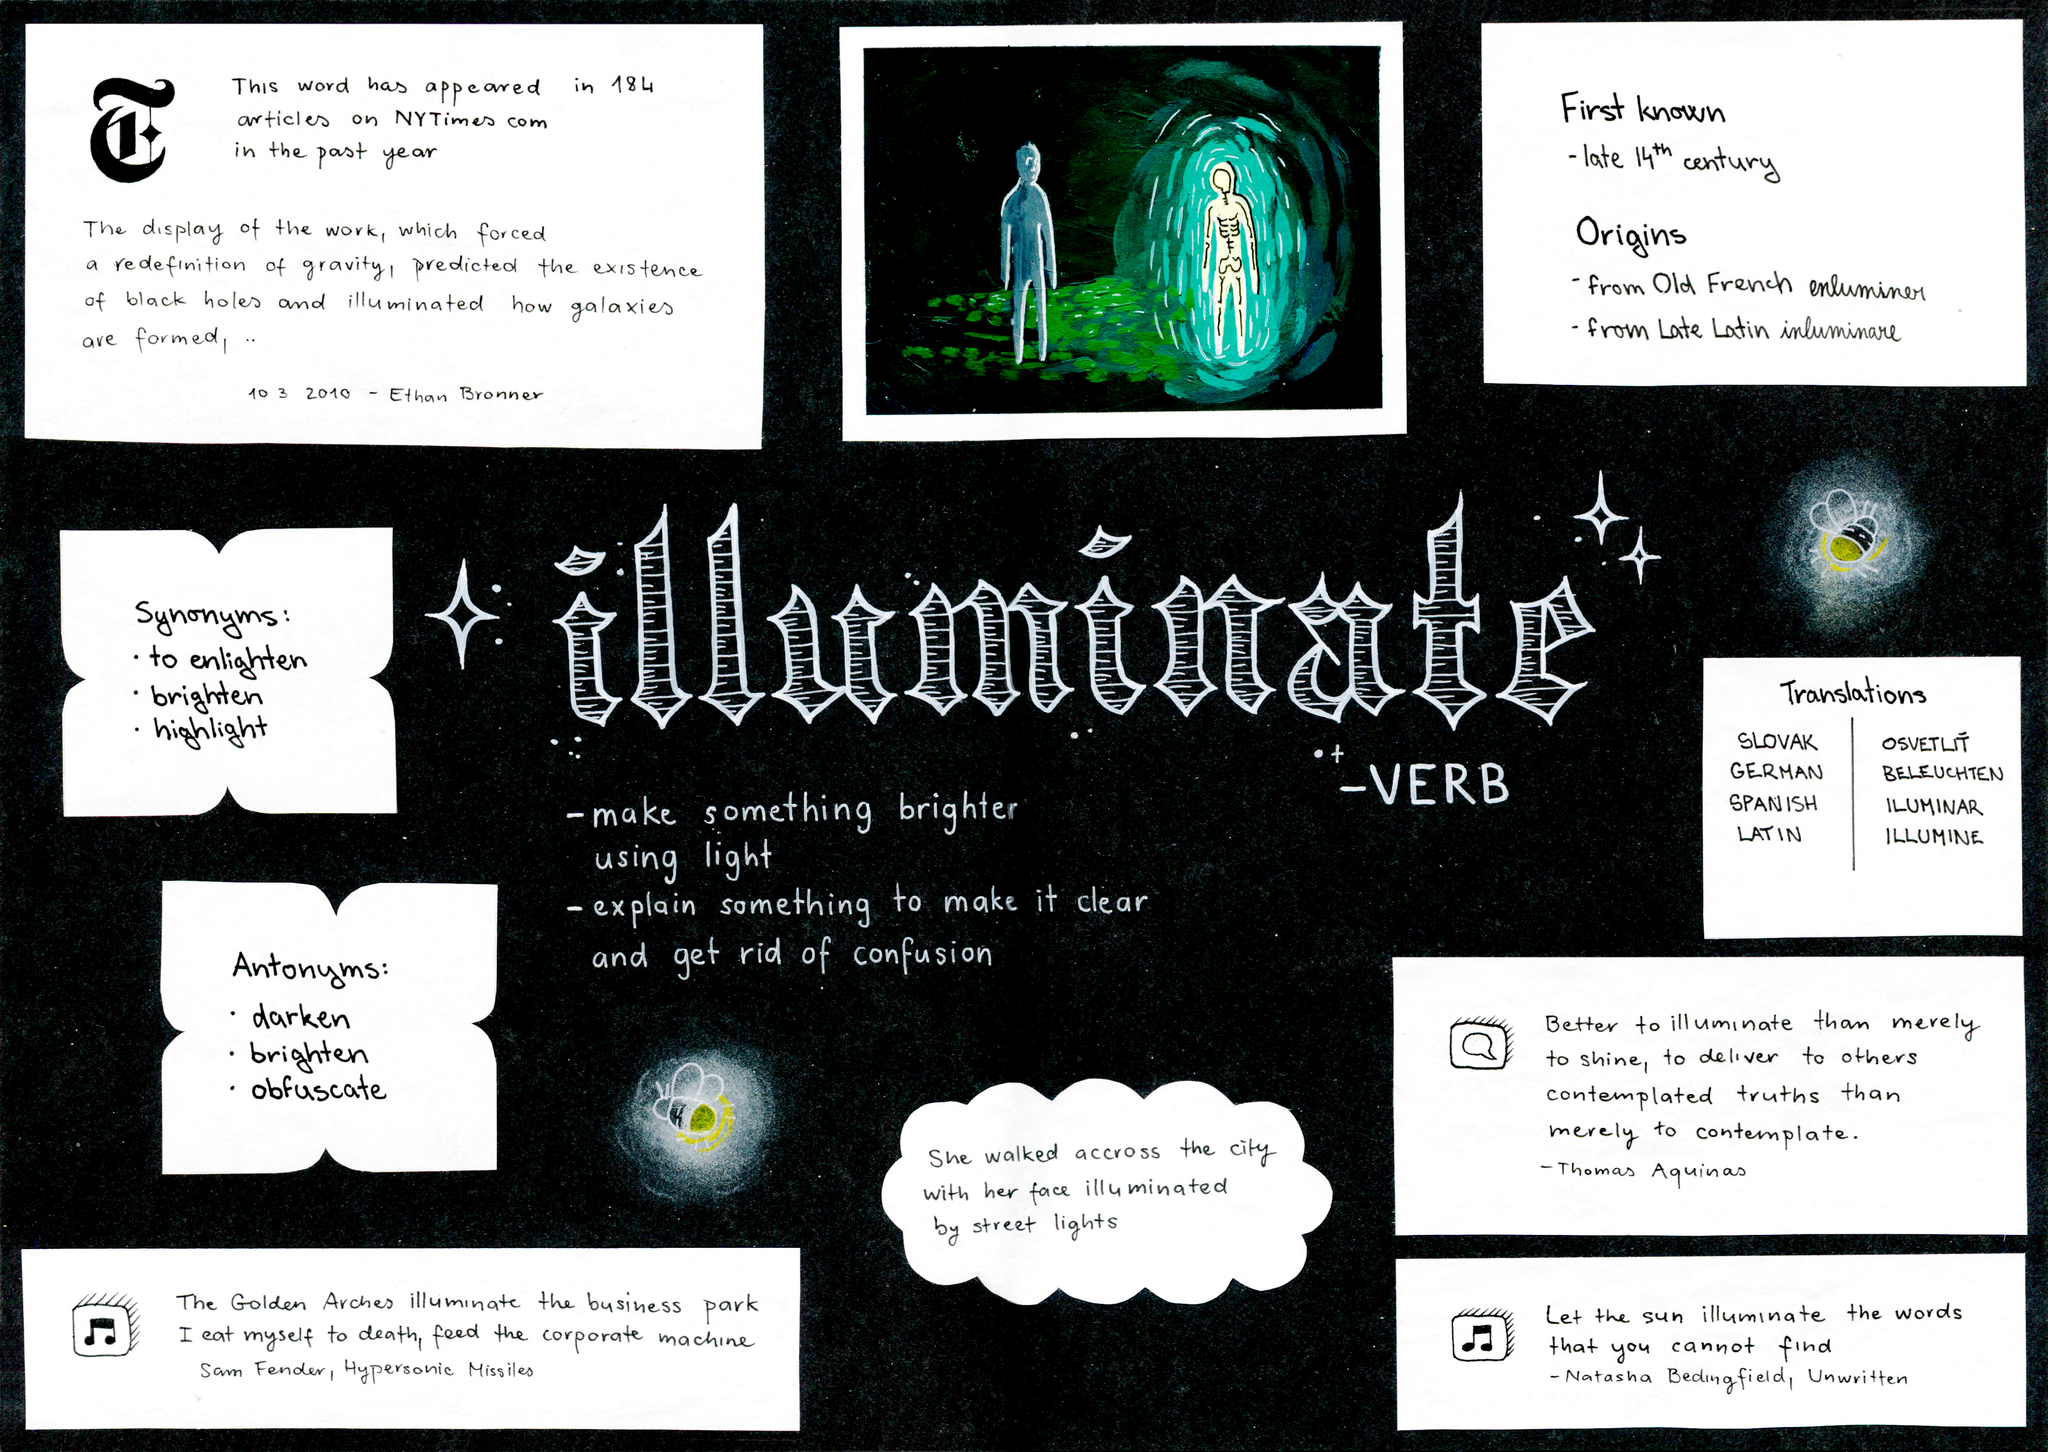 This word has appeared in 184
articles on NYTimes com
in the past year
The display of the work, which forced
a redefinition of gravity, predicted the existence
of black holes and illuminated how galaxies
are formed, ..
10 3 2010 - Ethan Bronner
First known
- late 14th century
Origins
- from Old French enluminer
- from Late Latin inluminare
Synonyms:
· to enlighten
· brighten
· highlight
illuminate
-VERB
- make something brighter
using light
- explain something to make it clear
and get rid of confusion
Translations
SLOVAK OSVETLIŤ
GERMAN BELEUCHTEN
SPANISH ILUMINAR
LATIN ILLUMINE
Antonyms:
· darken
· brighten
· obfuscate
Better to illuminate than merely
to shine, to deliver to others
contemplated truths than
merely to contemplate.
-Thomas Aquinas
She walked accross the city
with her face illuminated
by street lights
The Golden Arches illuminate the business park
I eat myself to death, feed the corporate machine
Sam Fender, Hypersonic Missiles
Let the sun illuminate the words
that you cannot find
- Natasha Bedingfield, Unwritten